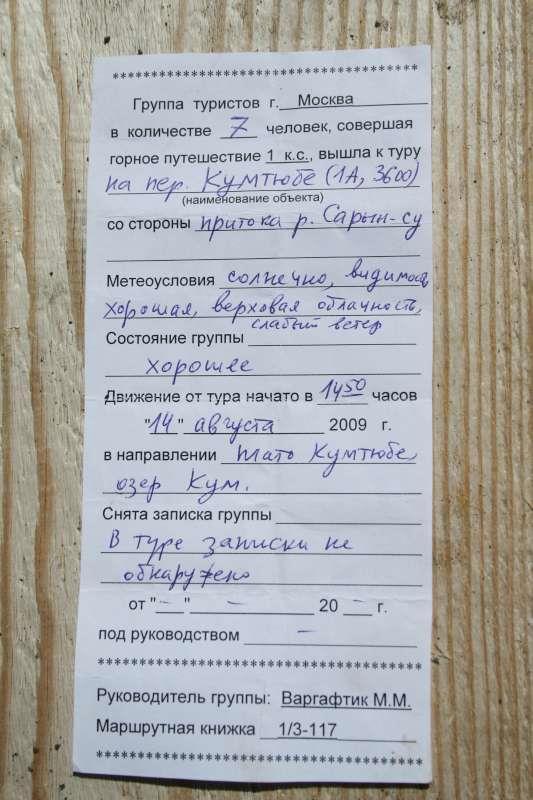 **************************************
Группа туристов г. Москва
в количестве 7 человек, совершая
горное путешествие 1 к.с., вышла к туру
на пер. Кумтюбе (1А, 3600)
(наименование объекта)
со стороны притока р. Сарын-су
Метеоусловия солнечно, видимость
хорошая, верховая облачность,
слабый ветер
Состояние группы
хорошее
Движение от тура начато в 14 50 часов
"14" августа 2009 г.
в направлении плато Кумтюбе,
озер Кум.
Снята записка группы
В туре записки не
обнаружено
от "—" — 20 — г.
под руководством —
**************************************
Руководитель группы: Варгафтик М.М.
Маршрутная книжка 1/3-117
**************************************